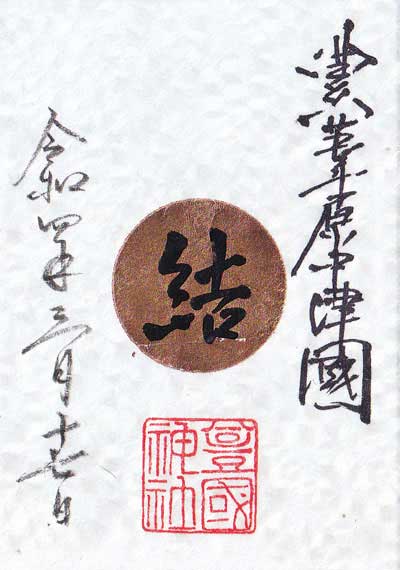 豊葦原中津國
結
豊國神社
令和四年三月十七日